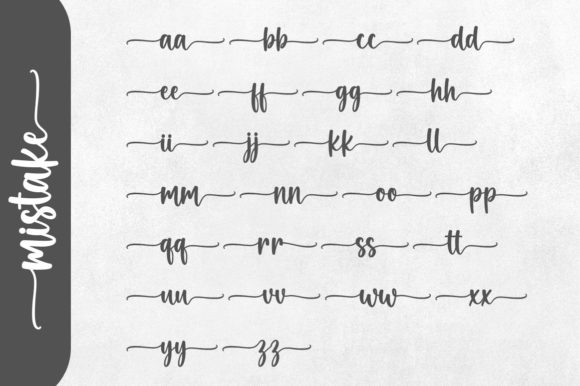 mistake
aa bb cc dd
ee ff gg hh
ii jj kk ll
mm nn oo pp
qq rr ss tt
uu vv ww xx
yy zz